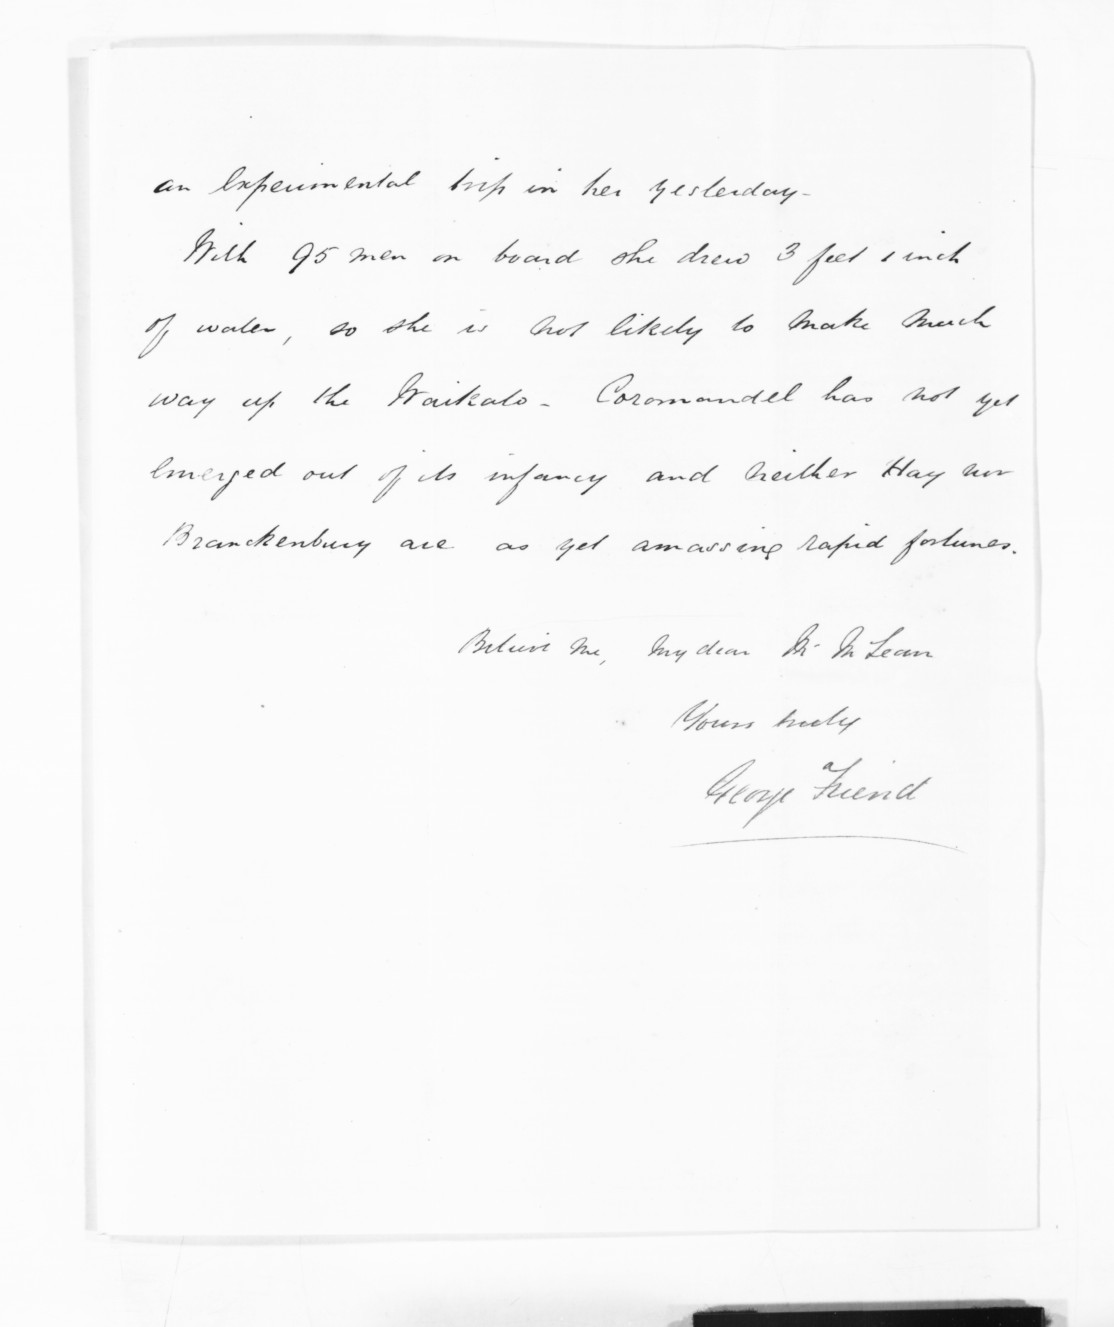 an experimental trip in her yesterday -
With 95 men on board she drew 3 feet 1 inch
of water, so she is not likely to make much
way up the Waikato - Coromandel has not yet
emerged out of its infancy and neither Hay nor
Branckenbury are as yet amassing rapid fortunes.
Believe me, my dear Mr McLean
Yours truly
George Friend